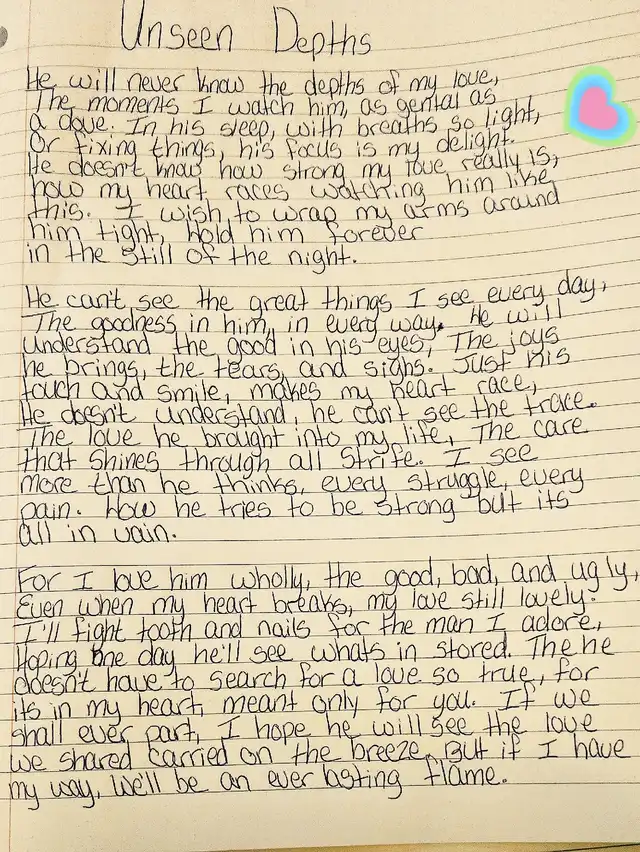 Unseen Depths
He will never know the depths of my love,
The moments I watch him, as gental as
a dove. In his sleep, with breaths so light,
Or fixing things, his focus is my delight.
He doesn't know how strong my love really is,
how my heart races watching him like
this. I wish to wrap my arms around
him tight, Hold him forever
in the still of the night.
He can't see the great things I see every day,
The goodness in him, in every way. He will
understand the good in his eyes, The joys
he brings, the tears, and sighs. Just his
touch and smile, makes my heart race,
He doesn't understand, he can't see the trace.
The love he brought into my life, The care
that shines through all Strife. I see
more than he thinks, every struggle, every
pain. How he tries to be strong but its
all in vain.
For I love him wholly, the good, bad, and ugly,
Even when my heart breaks, my love still lovely.
I'll fight tooth and nails for the man I adore,
Hoping one day he'll see whats in stored. The he
doesn't have to search for a love so true, for
its in my heart, meant only for you. If we
shall ever part, I hope he will see the love
we shared carried on the breeze, But if I have
my way, We'll be an ever lasting flame.